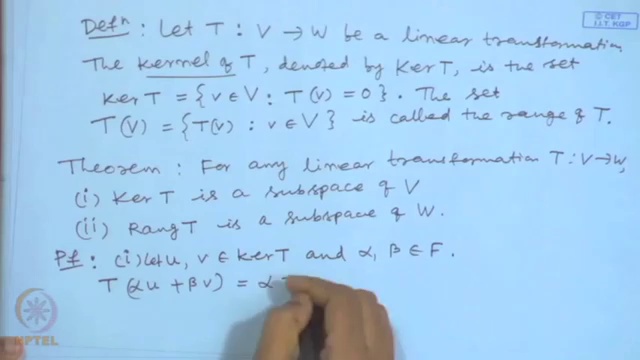 © CET
I.I.T. KGP
Defⁿ : Let T : V → W be a linear transformation.
The kernel of T, denoted by Ker T, is the set
Ker T = {v ∈ V : T(v) = 0}. The set
T(V) = {T(v) : v ∈ V} is called the range of T.
Theorem : For any linear transformation T : V → W,
(i) Ker T is a subspace of V
(ii) Rang T is a subspace of W.
Pf : (i) Let u, v ∈ Ker T and α, β ∈ F.
T(αu + βv) = α
NPTEL